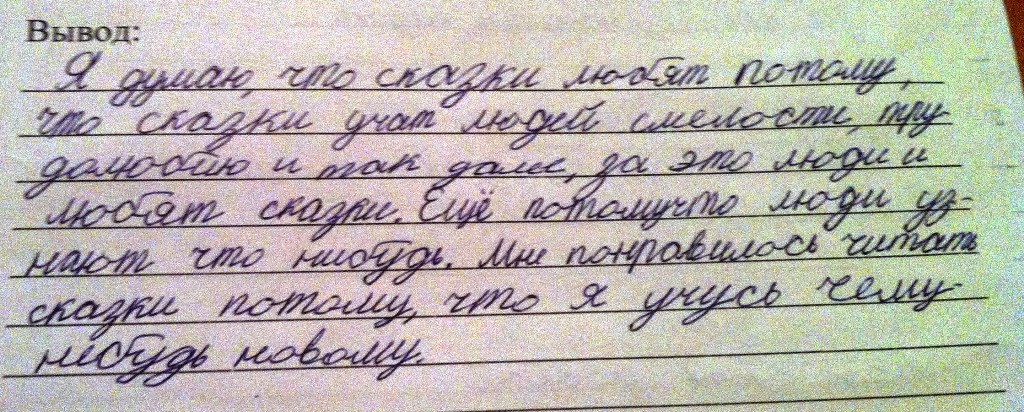 Вывод:
Я думаю, что сказки любят потому,
что сказки учат людей смелости, тру-
долюбию и так далее, за это люди и
любят сказки. Ещё потомучто люди уз-
нают что нибудь. Мне понравилось читать
сказки потому, что я учусь чему-
нибудь новому.